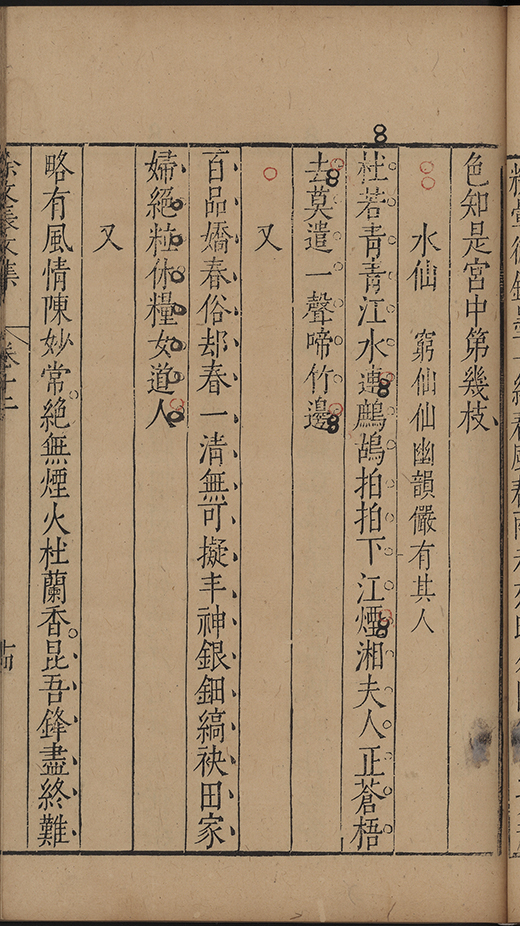 色知是宮中第幾枝
水仙 窮仙仙幽韻儼有其人
杜若青青江水連鷓鴣拍拍下江煙湘夫人正蒼梧
去莫遣一聲啼竹邊
又
百品嬌春俗却春一清無可擬丰神銀鈿縞袂田家
婦絕粒休糧女道人
又
略有風情陳妙常絕無煙火杜蘭香昆吾鋒盡終難
徐文長文集 卷十二